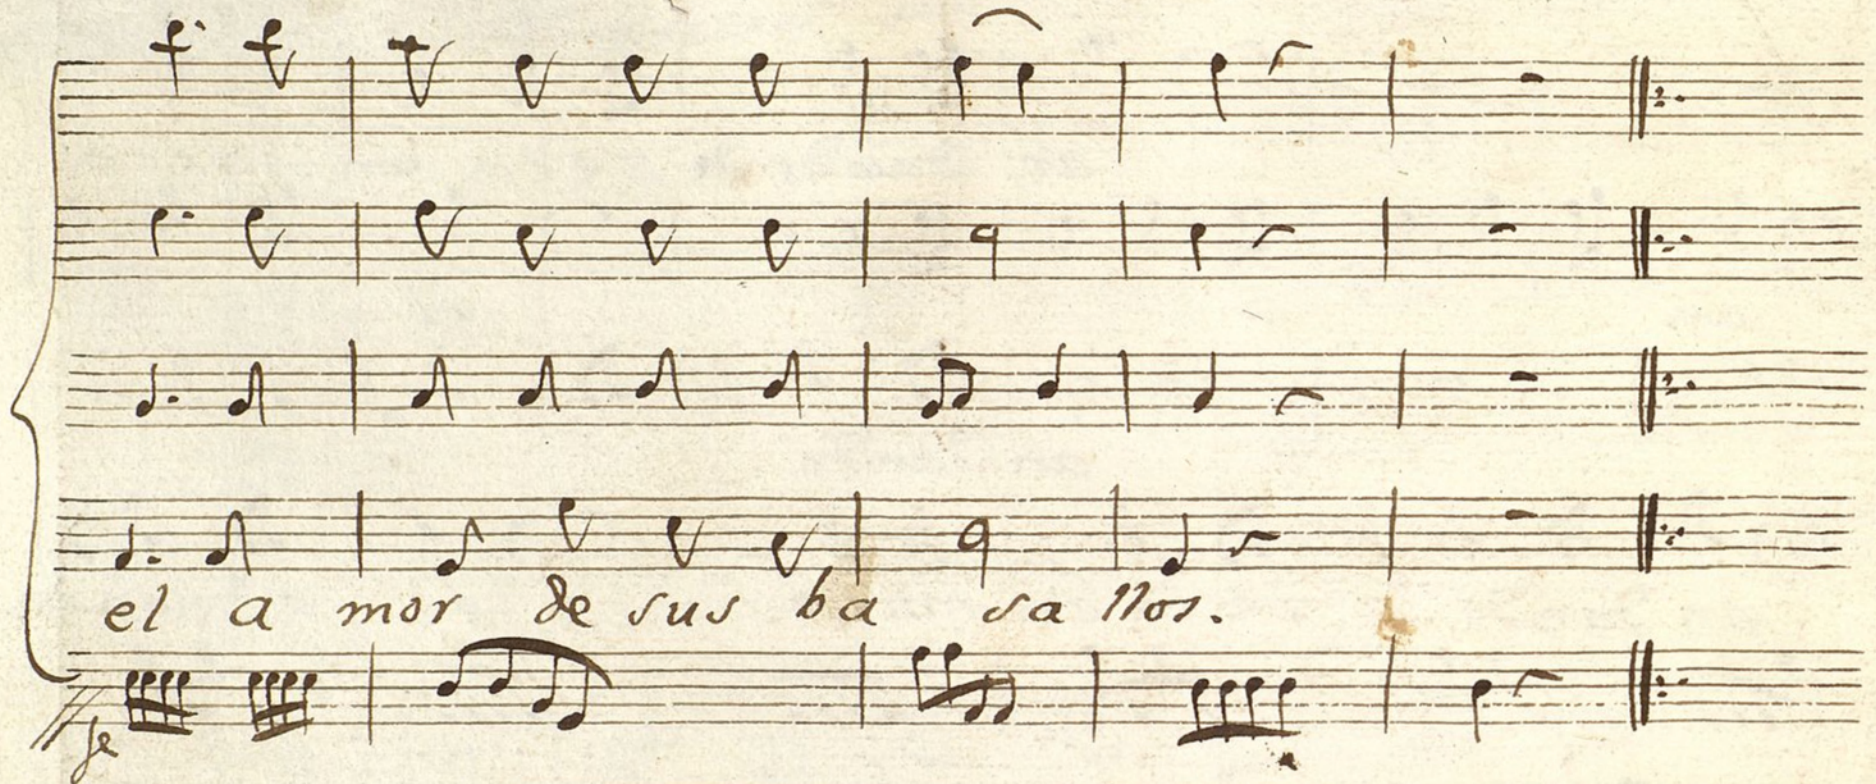 el a mor de sus ba sa llos.